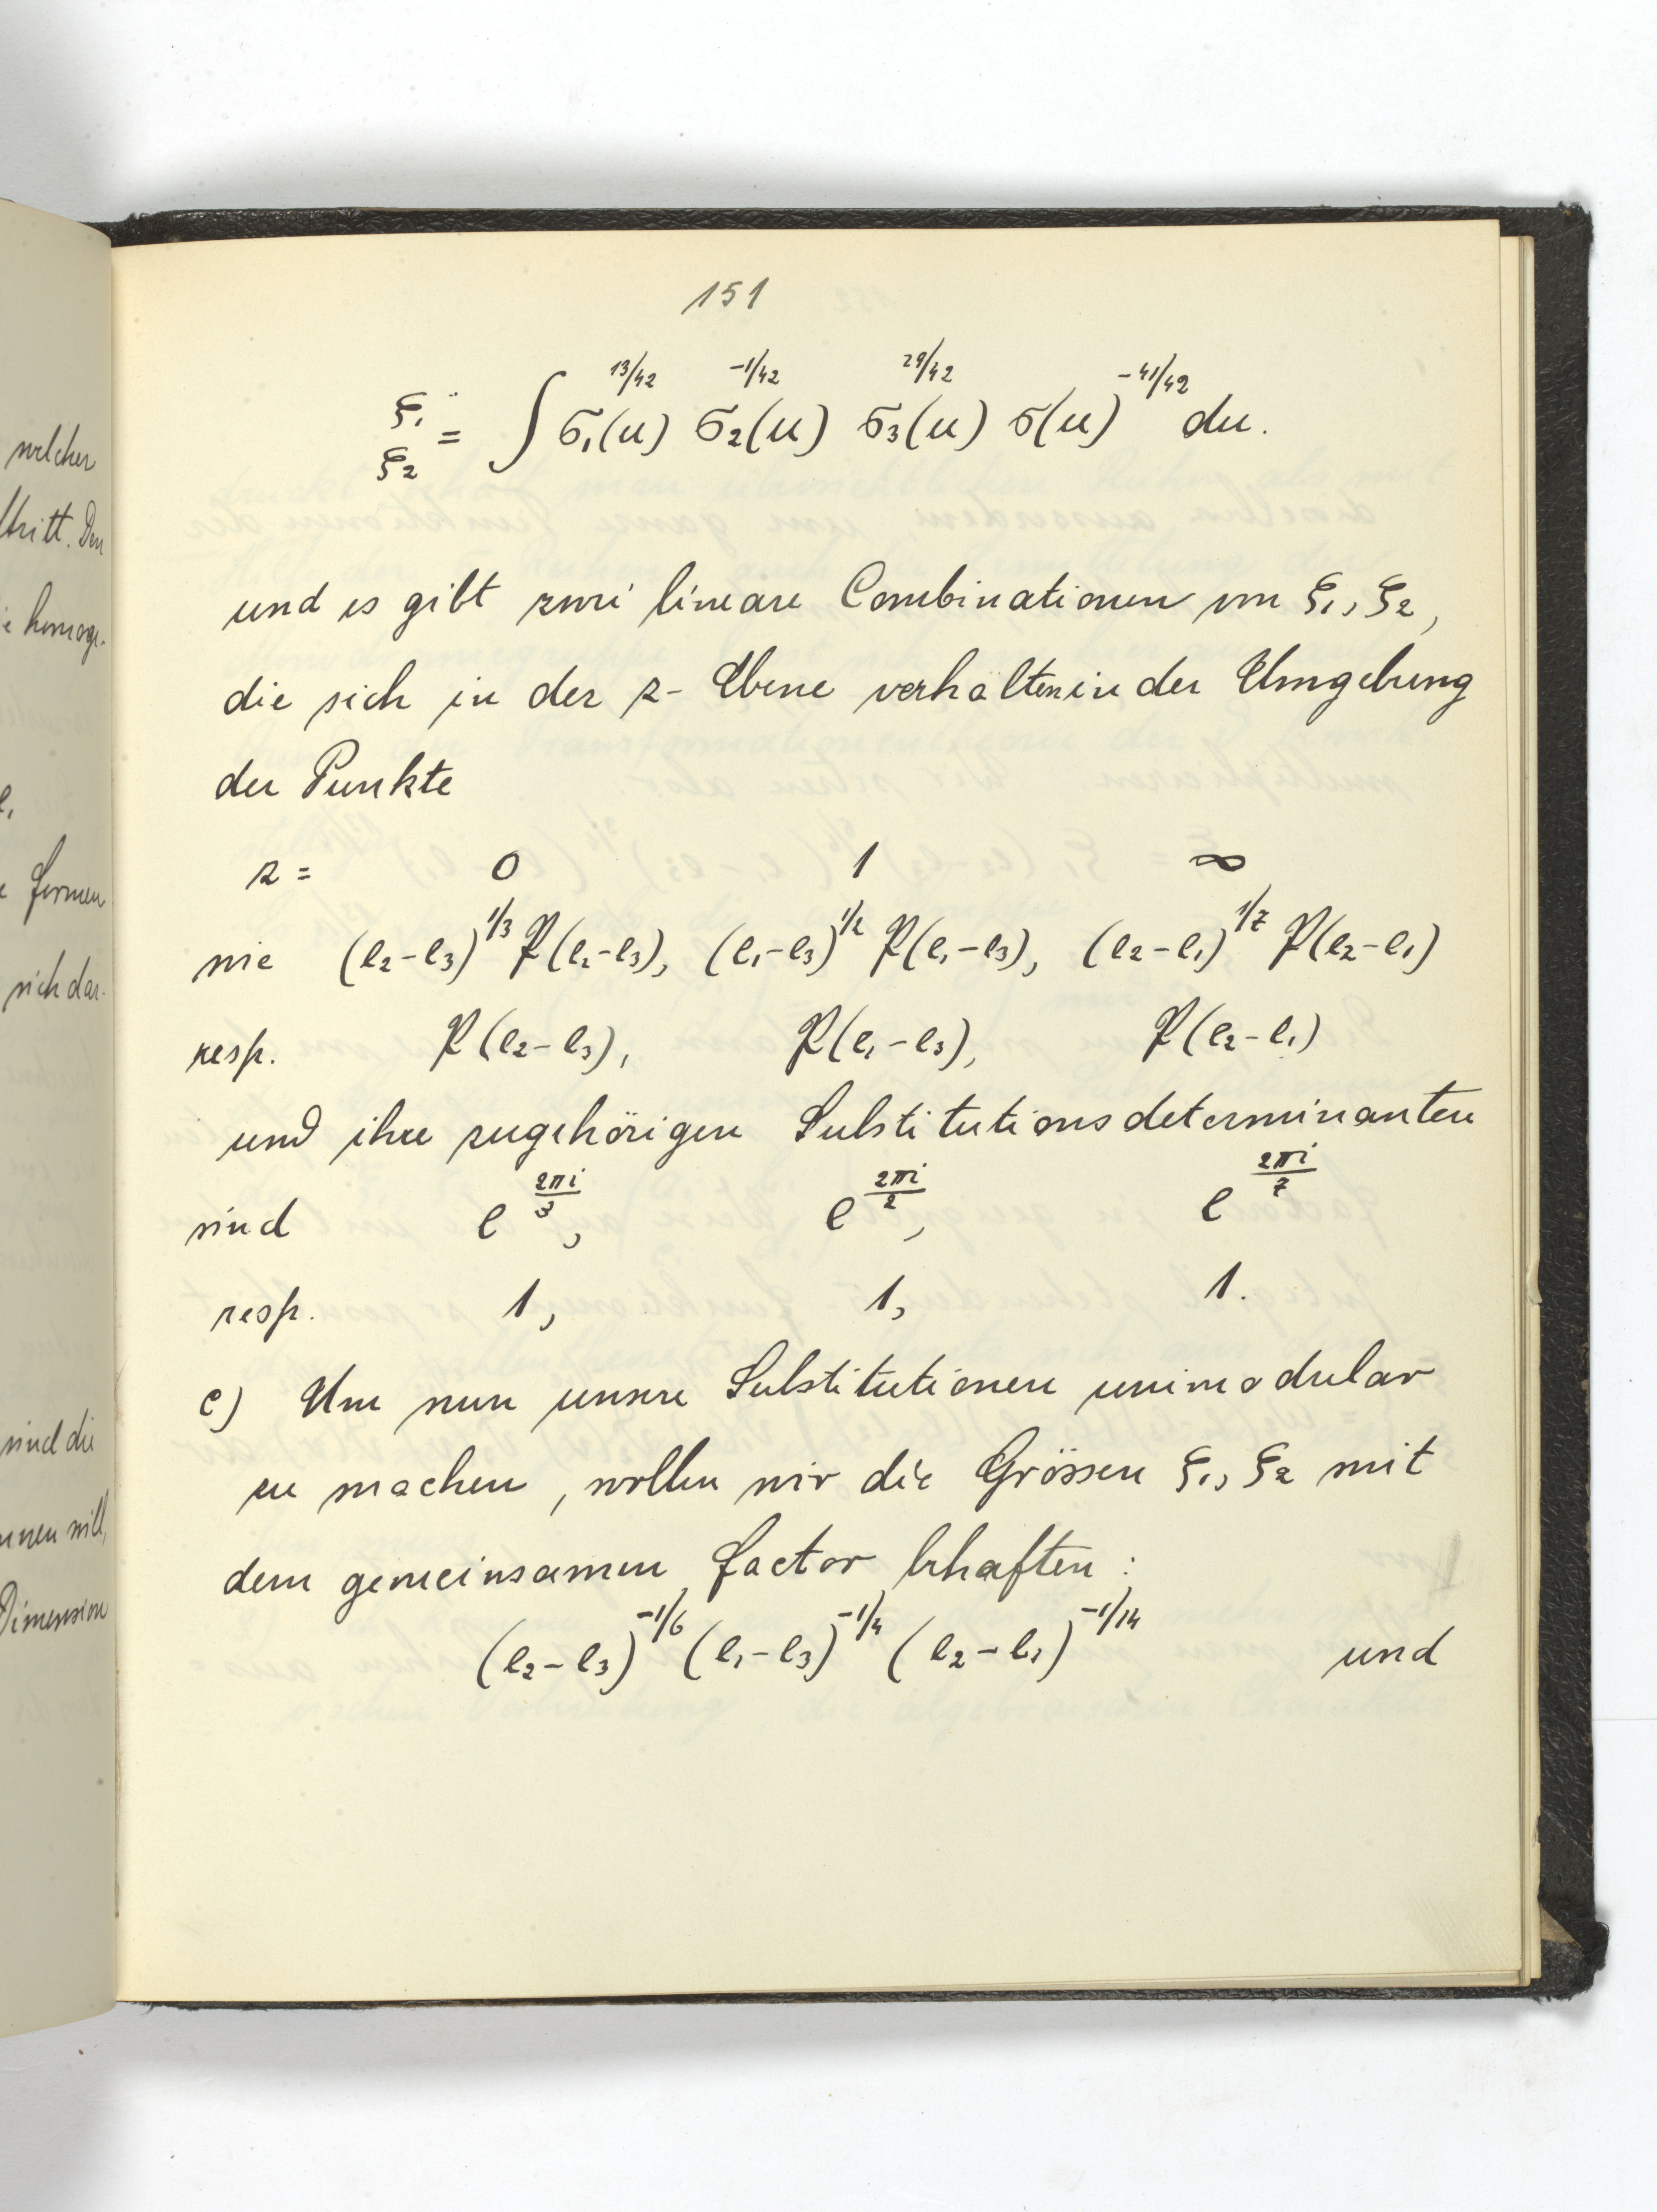 welcher
tritt. Den
homoge-
formen
sich dar-
sind die
will,
Dimension
151
ξ₁
ξ₂ = ∫ σ₁(u)^{13/42} σ₂(u)^{-1/42} σ₃(u)^{29/42} σ(u)^{-41/42} du.
und es gibt zwei lineare Combinationen von ξ₁, ξ₂,
die sich in der z-Ebene verhalten in der Umgebung
der Punkte
z = 0 1 ∞
wie (e₂-e₃)^{1/3} P(e₂-e₃), (e₁-e₃)^{1/2} P(e₁-e₃), (e₂-e₁)^{1/7} P(e₂-e₁)
resp. P(e₂-e₃), P(e₁-e₃), P(e₂-e₁)
und ihre zugehörigen Substitutionsdeterminanten
sind e^{2πi/3}, e^{2πi/2}, e^{2πi/7}
resp. 1, 1, 1.
c) Um nun unsere Substitutionen unimodular
zu machen, wollen wir die Grössen ξ₁, ξ₂ mit
dem gemeinsamen Factor behaften:
(e₂-e₃)^{-1/6} (e₁-e₃)^{-1/4} (e₂-e₁)^{-1/14} und